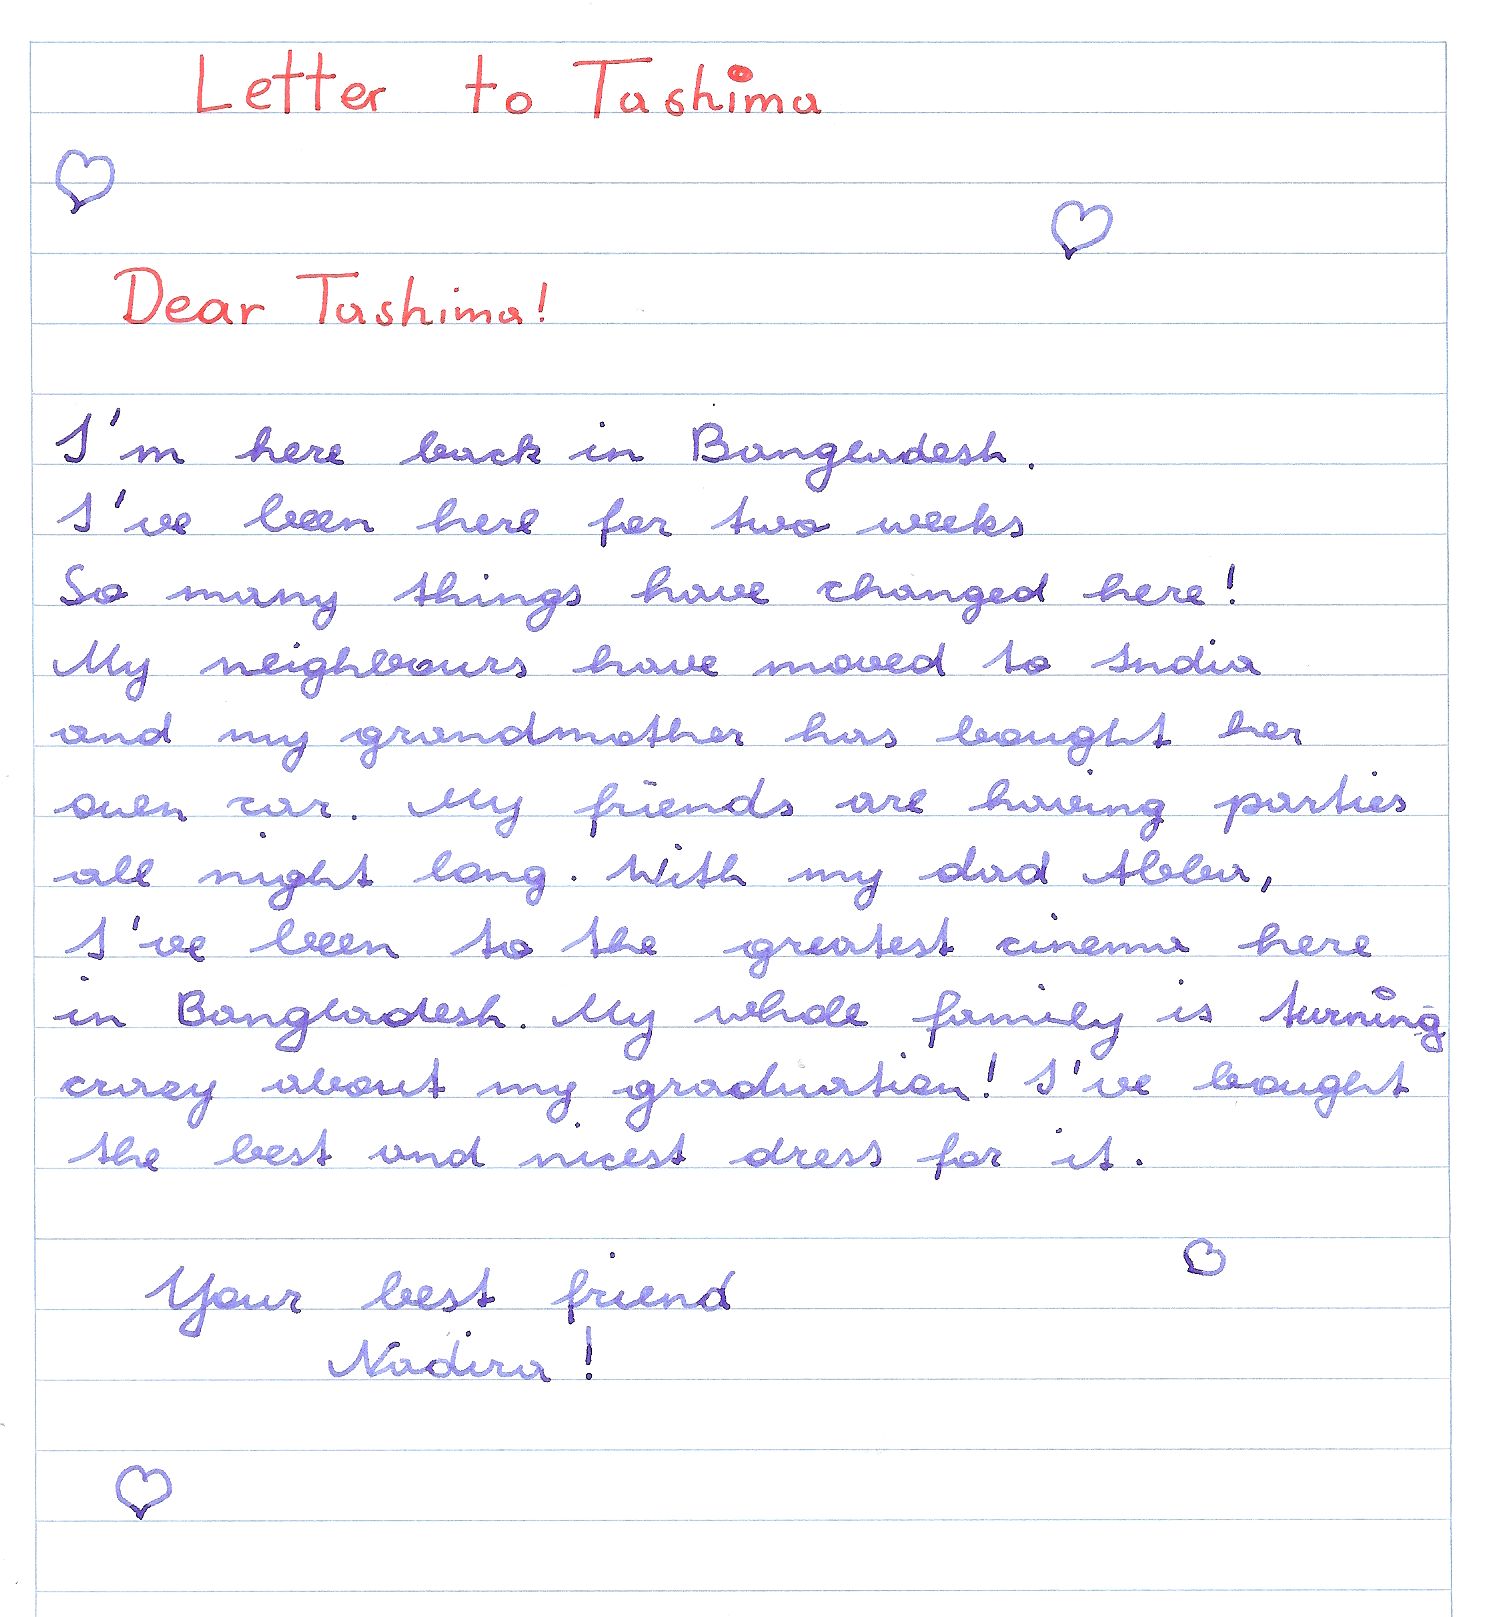 Letter to Tashima
Dear Tashima!
I'm here back in Bangladesh.
I've been here for two weeks
So many things have changed here!
My neighbours have moved to India
and my grandmother has bought her
own car. My friends are having parties
all night long. With my dad Abba,
I've been to the greatest cinema here
in Bangladesh. My whole family is turning
crazy about my graduation! I've bought
the best and nicest dress for it.
Your best friend
Nadira!